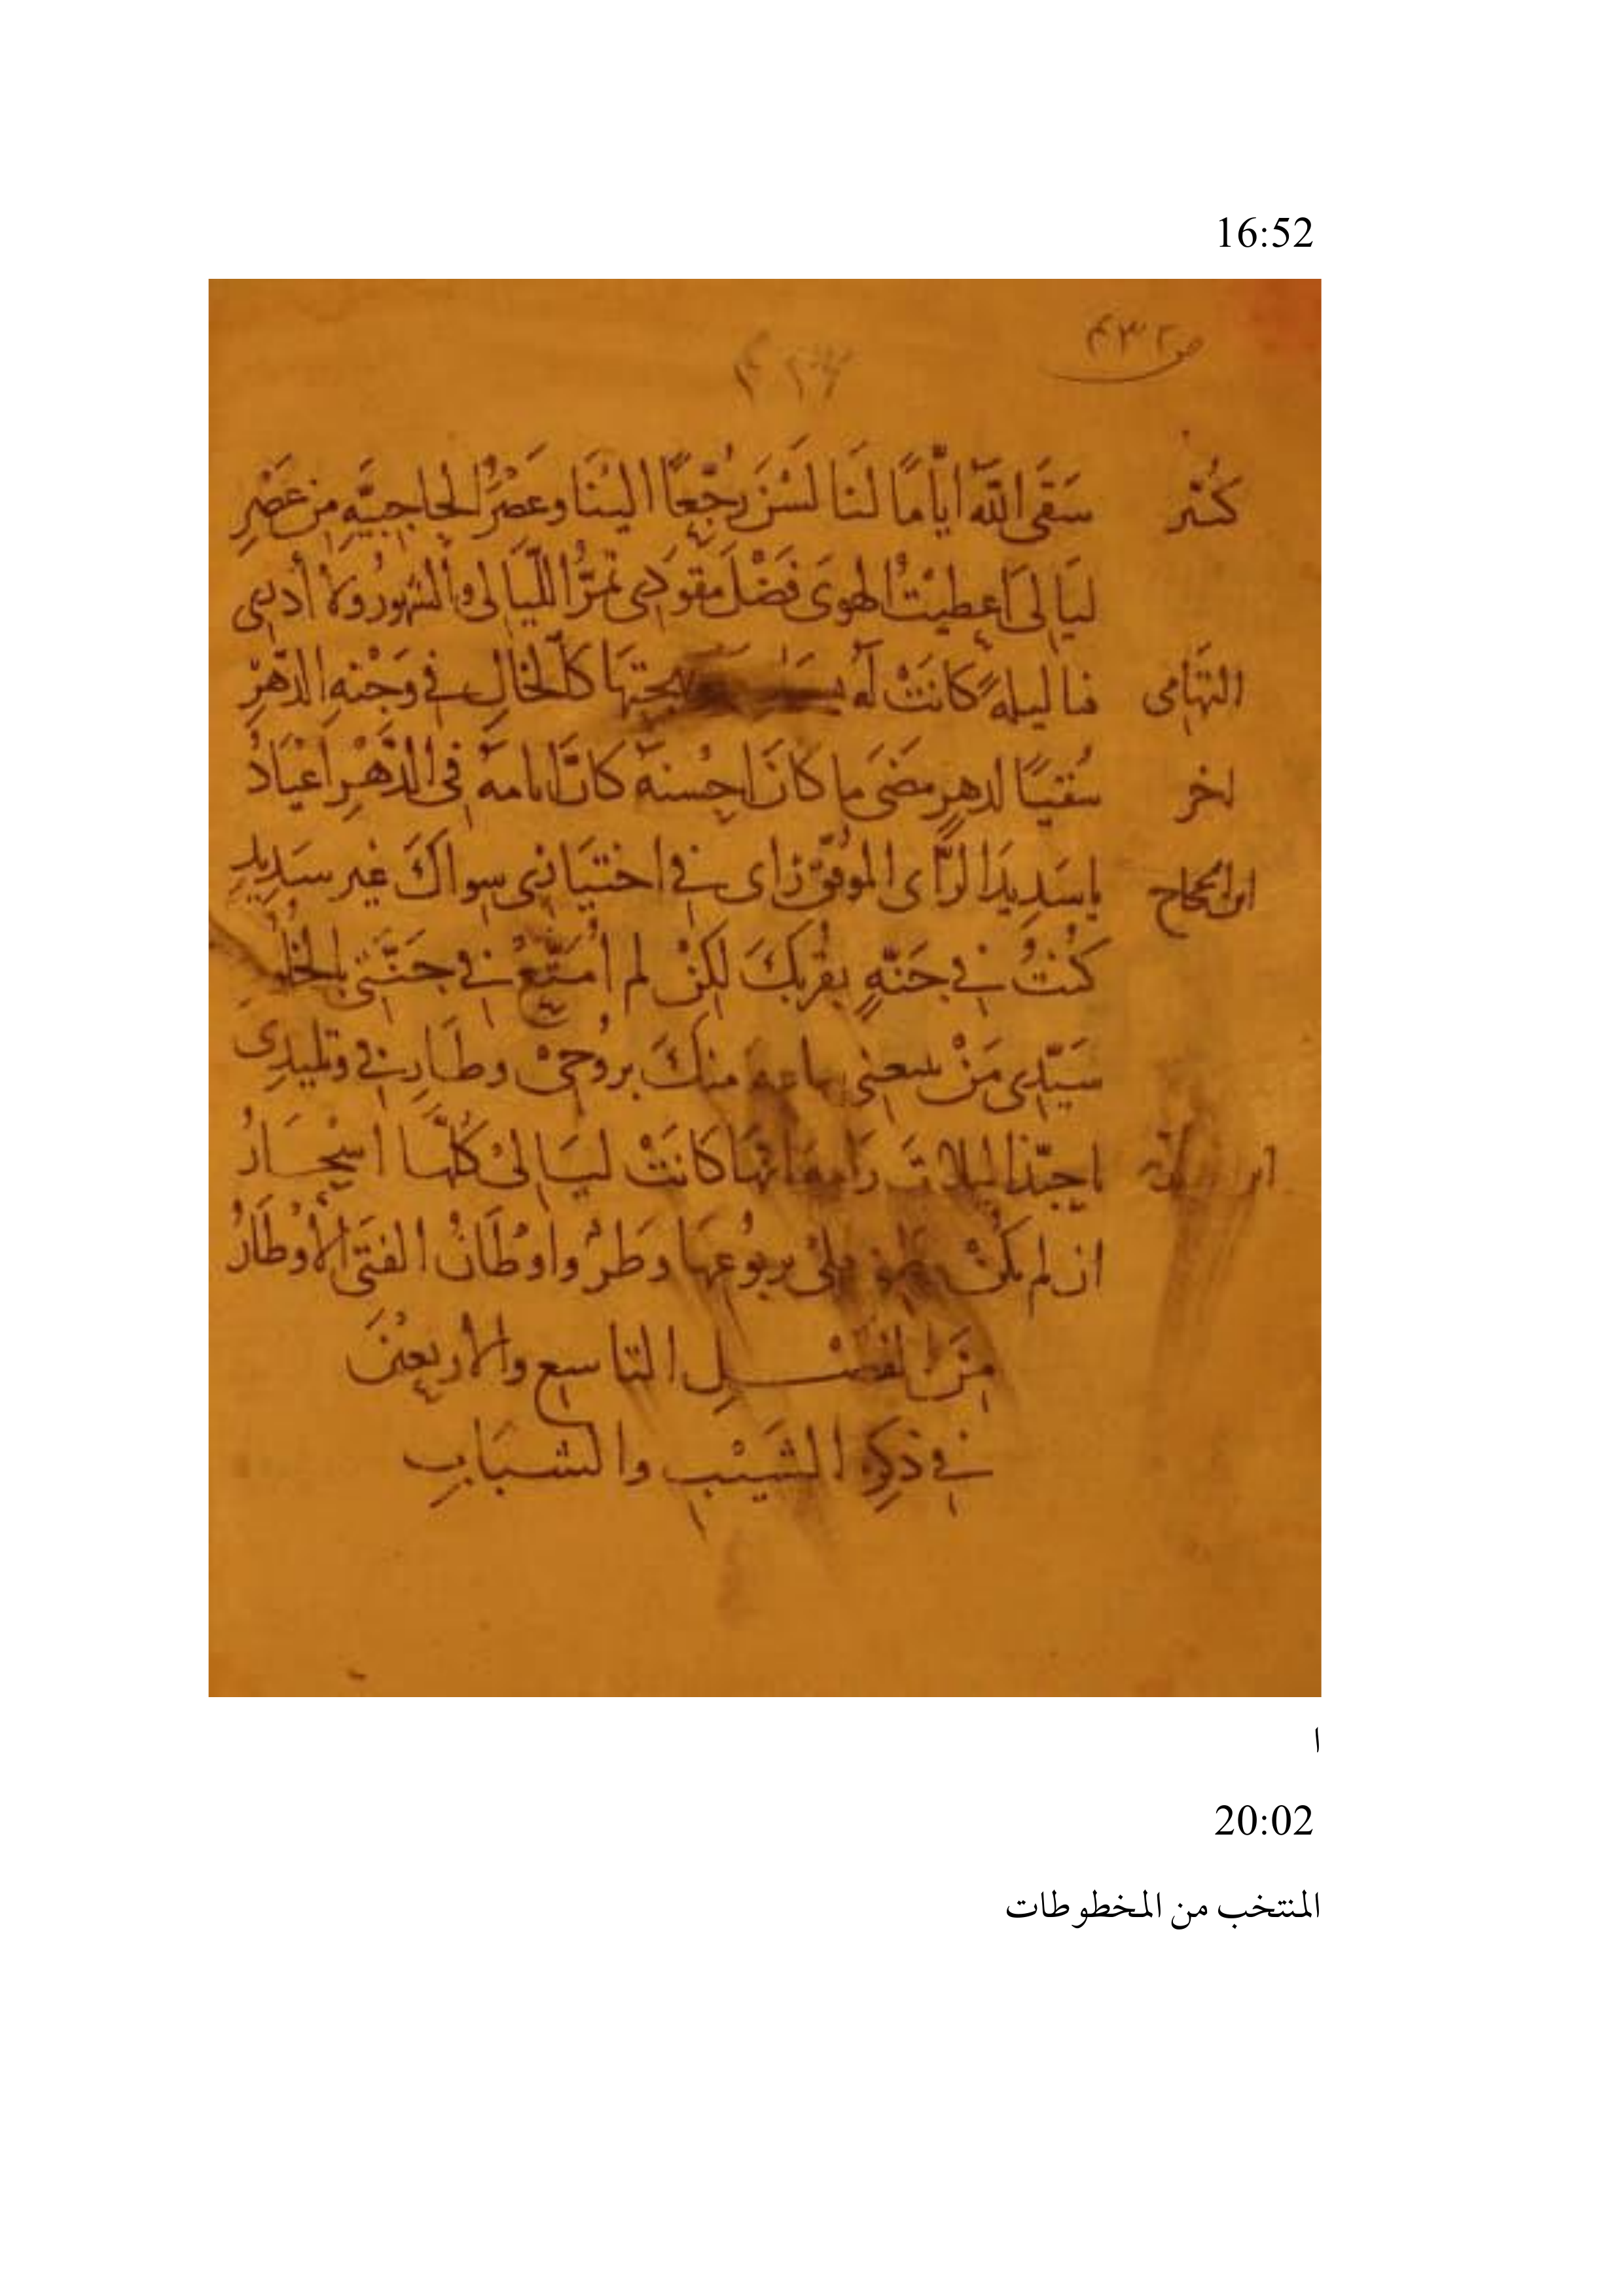 16:52
ص ٤٣٢
كُثيّر سَقَى اللّه ايّامًا لنَا لَسْنَ رُجَّعًا الينَا وعصْرُ الحاجبيَّةِ مِن عَصْرِ
ليَالى اعطيتُ الهوىَ فضْلَ مقْوَدى تمرُّ اللّيَالى والشهورُ ولا أدرى
التهَامى فيا ليلةً كانتْ كالخَالِ فى وَجْنةِ الدّهْرِ
اخر سُقيًا لدهرٍ مضَى ما كانَ احْسنَهُ كانَّ ايامهُ فى الدّهْرِ اعْيَادُ
ابن الحجاج يا سَدِيدَ الرَّاى الموفّق رَاى فى اختيَارى سواكَ غير سَدِيدِ
كنْتُ فى جنّةٍ بقُرْبكَ لكنْ لم امتّعْ فى جَنّتى بالخلُو
سَيّدى مَنْ يبيعنى ساعة منكَ بروُحىْ وطَارِفى وتليدِى
يا حبّذا ليلات رامة انهَا كانَتْ ليَالىْ كلّهَا اسْحَارُ
ان لم يكُنْ وطنى ربوُعهَا وطرُ واوْطَانُ الفتَى الأوْطَارُ
منَ الفصْلِ التاسع والأربعيْنَ
فى ذكرِ الشيْب والشبَابِ
ا
20:02
المنتخب من المخطوطات